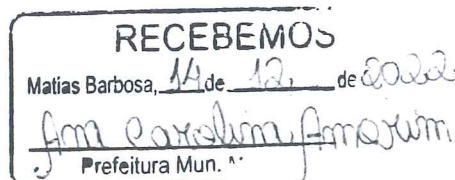 RECEBEMOS
Matias Barbosa, 14 de 12 de 2022
Ana Carolina Amorim
Prefeitura Mun.